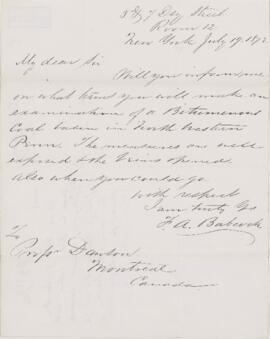 5 & 7 Dey Street
Room 12
New York July 19. 1872
My dear Sir
Will you inform me
on what terms you will make an
examination of a Bituminous
Coal basin in North Western
Penn. The measures are well
exposed & the Veins opened.
Also when you could go
with respect
I am truly Yrs
F. A. Babcock
To
Profr Dawson
Montreal
Canada